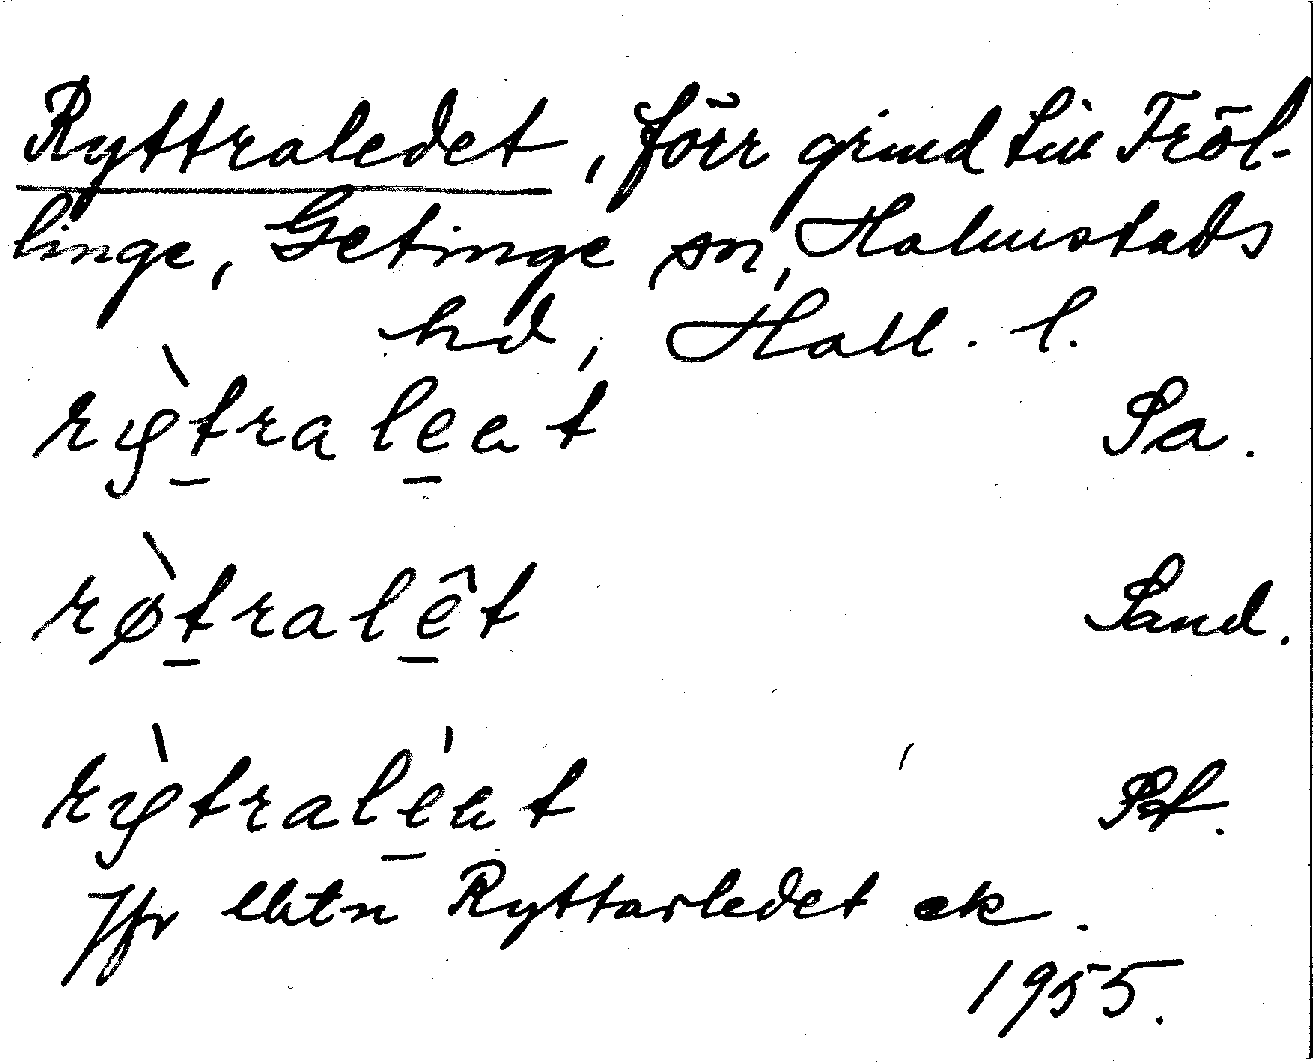 Ryttraledet, förr grind till Fröl-
linge, Getinge sn, Halmstads
hd, Hall. l.
rỳtraleat Sa.
rø̀tralêt Sand.
rỳtraléat Pf.
Jfr ektn Ryttarledet ek.
1955.